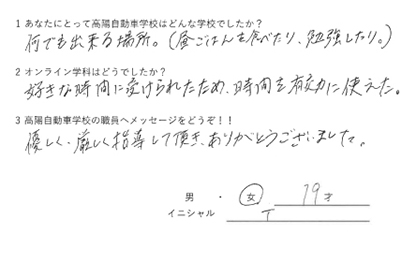 1 あなたにとって高陽自動車学校はどんな学校でしたか？
何でも出来る場所。(昼ごはんを食べたり、勉強したり。)
2 オンライン学科はどうでしたか？
好きな時間に受けられたため、時間を有効に使えた。
3 高陽自動車学校の職員へメッセージをどうぞ！！
優しく、厳しく指導して頂き、ありがとうございました。
男 ・ 女 19才
イニシャル T